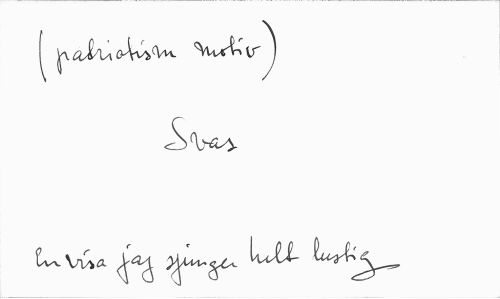 (patriotism motiv)
Svas
En visa jag sjunger helt lustig